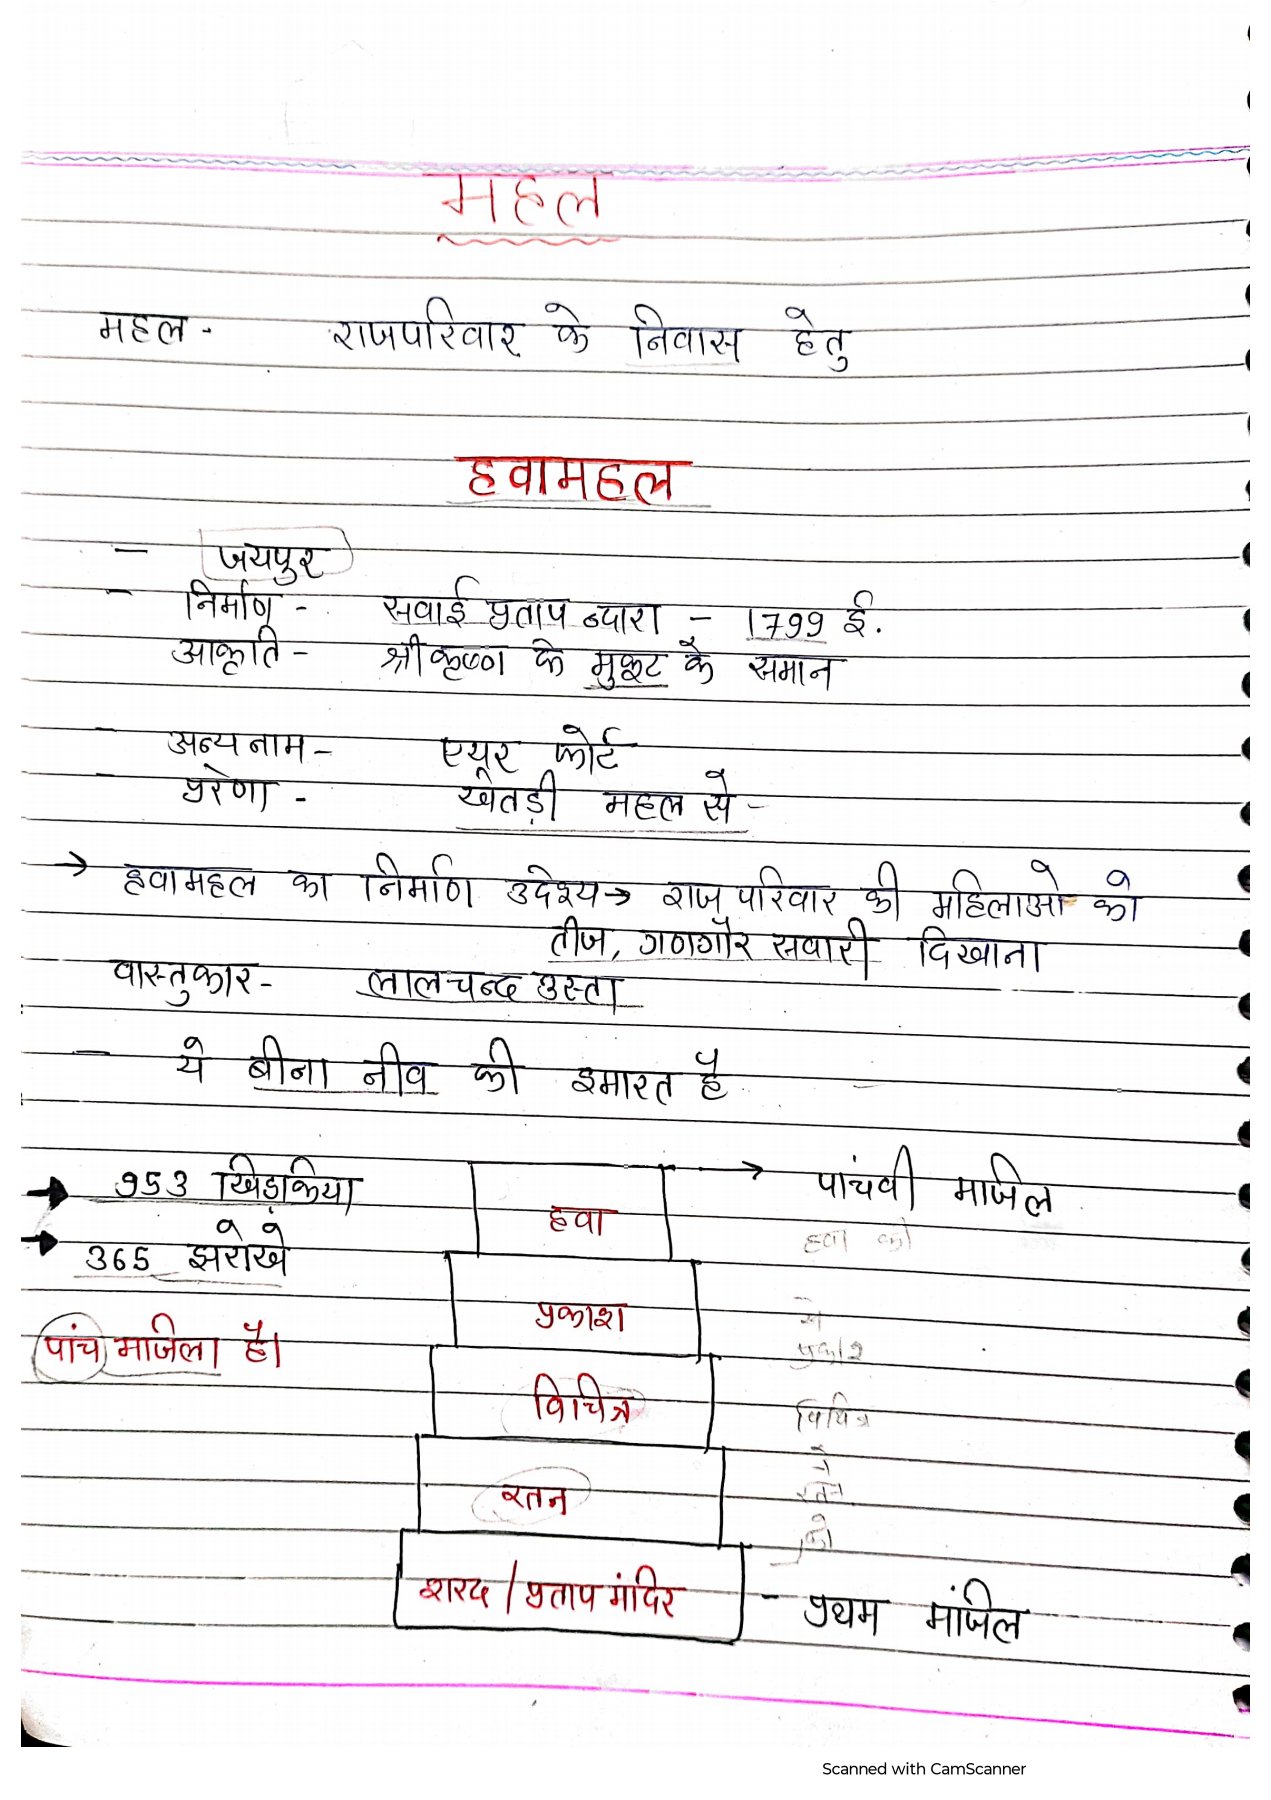 महल
महल - राजपरिवार के निवास हेतु
हवामहल
- जयपुर
- निर्माण - सवाई प्रताप द्वारा - 1799 ई.
आकृति - श्रीकृष्ण के मुकुट के समान
- अन्य नाम - एयर फोर्ट
- प्रेरणा - खेतड़ी महल से -
→ हवामहल का निर्माण उदेश्य → राज परिवार की महिलाओ को
तीज, गणगौर सवारी दिखाना
वास्तुकार - लालचन्द उस्ता
- ये बीना नीव की इमारत है
→ 953 खिड़किया
→ 365 झरोखे
पांच मंजिला है।
हवा → पांचवी मंजिल
हवा को
प्रकाश
से
प्रकाश
विचित्र
विचित्र
ने
रतन
रतन
को
शरद / प्रताप मंदिर - प्रथम मंजिल
Scanned with CamScanner